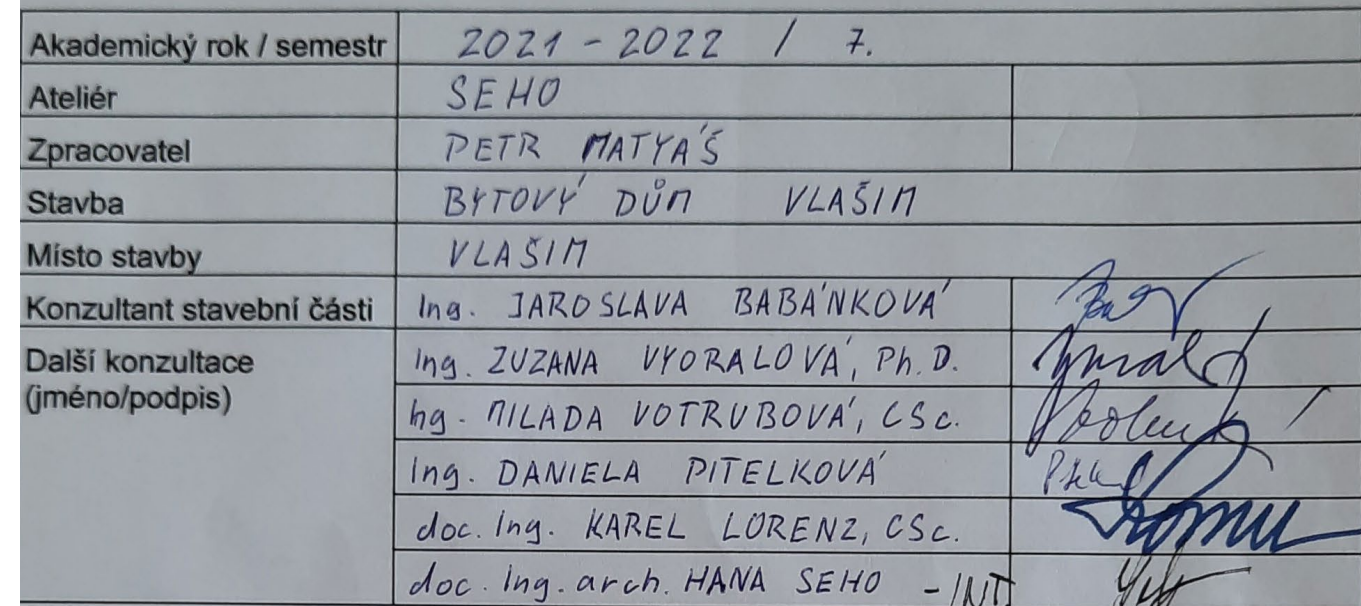 Akademický rok / semestr 2021 - 2022 / 7.
Ateliér SEHO
Zpracovatel PETR MATYÁŠ
Stavba BYTOVÝ DŮM VLAŠIM
Místo stavby VLAŠIM
Konzultant stavební části Ing. JAROSLAVA BABÁNKOVÁ
Další konzultace Ing. ZUZANA VYORALOVÁ, Ph.D.
(jméno/podpis) Ing. MILADA VOTRUBOVÁ, CSc.
Ing. DANIELA PITELKOVÁ
doc. Ing. KAREL LORENZ, CSc.
doc. Ing. arch. HANA SEHO - INT